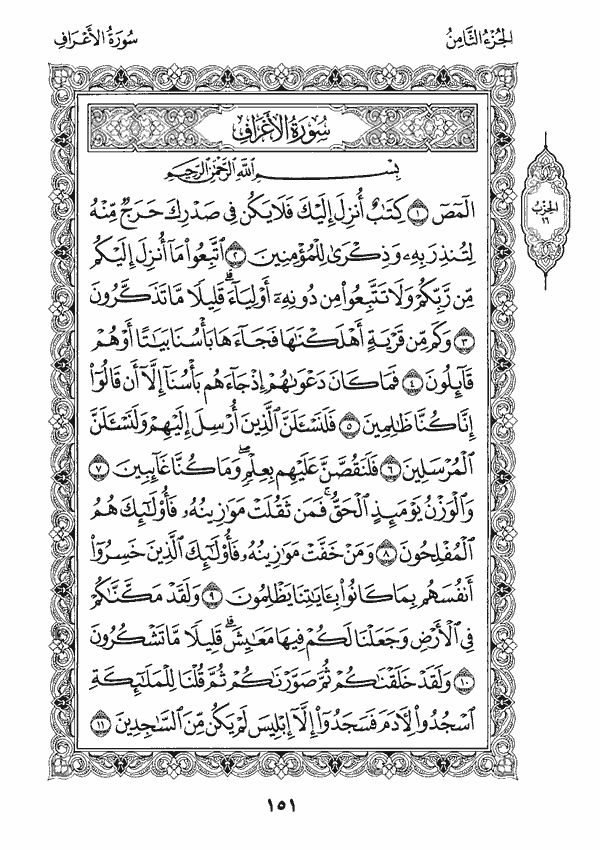 الجُزْءُ الثَّامِنُ
سُورَةُ الأَعْرَافِ
سُورَةُ الأَعْرَافِ
بِسْمِ اللَّهِ الرَّحْمَٰنِ الرَّحِيمِ
الٓمٓصٓ ١ كِتَٰبٌ أُنزِلَ إِلَيْكَ فَلَا يَكُن فِى صَدْرِكَ حَرَجٌ مِّنْهُ
لِتُنذِرَ بِهِۦ وَذِكْرَىٰ لِلْمُؤْمِنِينَ ٢ ٱتَّبِعُوا۟ مَآ أُنزِلَ إِلَيْكُم
مِّن رَّبِّكُمْ وَلَا تَتَّبِعُوا۟ مِن دُونِهِۦٓ أَوْلِيَآءَ ۗ قَلِيلًا مَّا تَذَكَّرُونَ
٣ وَكَم مِّن قَرْيَةٍ أَهْلَكْنَٰهَا فَجَآءَهَا بَأْسُنَا بَيَٰتًا أَوْ هُمْ
قَآئِلُونَ ٤ فَمَا كَانَ دَعْوَىٰهُمْ إِذْ جَآءَهُم بَأْسُنَآ إِلَّآ أَن قَالُوٓا۟
إِنَّا كُنَّا ظَٰلِمِينَ ٥ فَلَنَسْـَٔلَنَّ ٱلَّذِينَ أُرْسِلَ إِلَيْهِمْ وَلَنَسْـَٔلَنَّ
ٱلْمُرْسَلِينَ ٦ فَلَنَقُصَّنَّ عَلَيْهِم بِعِلْمٍ ۖ وَمَا كُنَّا غَآئِبِينَ ٧
وَٱلْوَزْنُ يَوْمَئِذٍ ٱلْحَقُّ ۚ فَمَن ثَقُلَتْ مَوَٰزِينُهُۥ فَأُو۟لَٰٓئِكَ هُمُ
ٱلْمُفْلِحُونَ ٨ وَمَنْ خَفَّتْ مَوَٰزِينُهُۥ فَأُو۟لَٰٓئِكَ ٱلَّذِينَ خَسِرُوٓا۟
أَنفُسَهُم بِمَا كَانُوا۟ بِـَٔايَٰتِنَا يَظْلِمُونَ ٩ وَلَقَدْ مَكَّنَّٰكُمْ
فِى ٱلْأَرْضِ وَجَعَلْنَا لَكُمْ فِيهَا مَعَٰيِشَ ۗ قَلِيلًا مَّا تَشْكُرُونَ
١٠ وَلَقَدْ خَلَقْنَٰكُمْ ثُمَّ صَوَّرْنَٰكُمْ ثُمَّ قُلْنَا لِلْمَلَٰٓئِكَةِ
ٱسْجُدُوا۟ لِـَٔادَمَ فَسَجَدُوٓا۟ إِلَّآ إِبْلِيسَ لَمْ يَكُن مِّنَ ٱلسَّٰجِدِينَ ١١
الحِزْبُ
١٦
١٥١